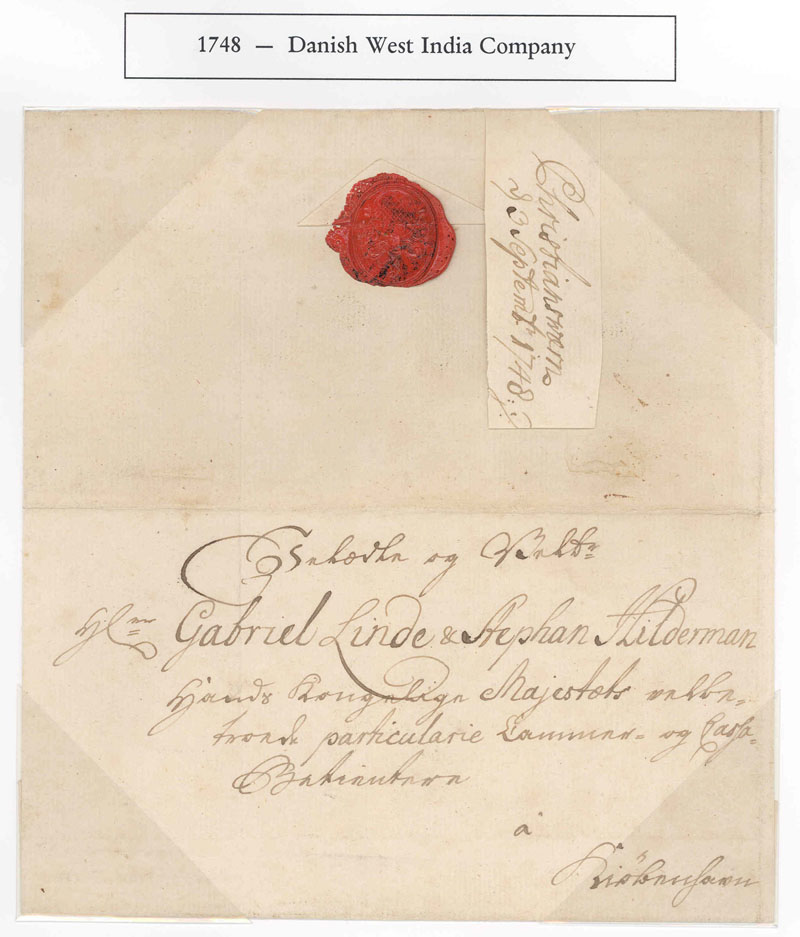 1748 — Danish West India Company
Christianswærn
d 3 Septembr 1748:
og Velbr
Hl Gabriel Linde & Stephan Hilderman
Hands Kongelige Majestæts velbe-
troede particulaire Cammer- og Cassa-
Betientere
á
Kiöbenhavn